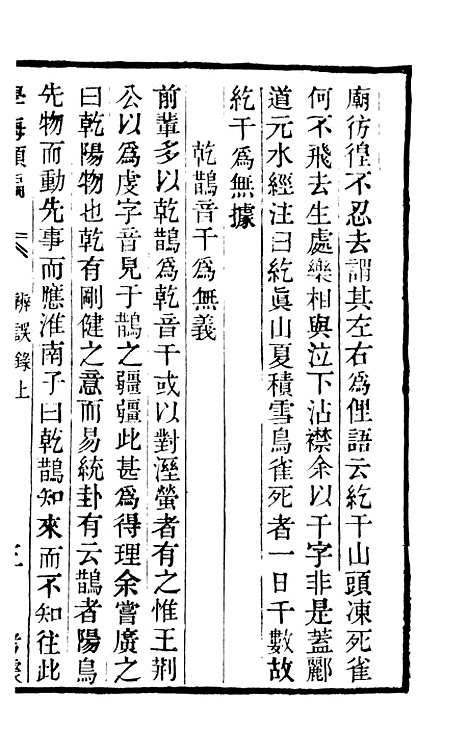 廟彷徨不忍去謂其左右為俚語云紇干山頭凍死雀
何不飛去生處樂相與泣下沾襟余以干字非是蓋酈
道元水經注曰紇眞山夏積雪鳥雀死者一日千數故
紇干為無據
乾鵲音干為無義
前輩多以乾鵲為乾音干或以對溼螢者有之惟王荆
公以為虔字音見于鵲之疆疆此甚為得理余嘗廣之
曰乾陽物也乾有剛健之意而易統卦有云鵲者陽鳥
先物而動先事而應淮南子曰乾鵲知來而不知往此
學海類編
辨誤錄上
三